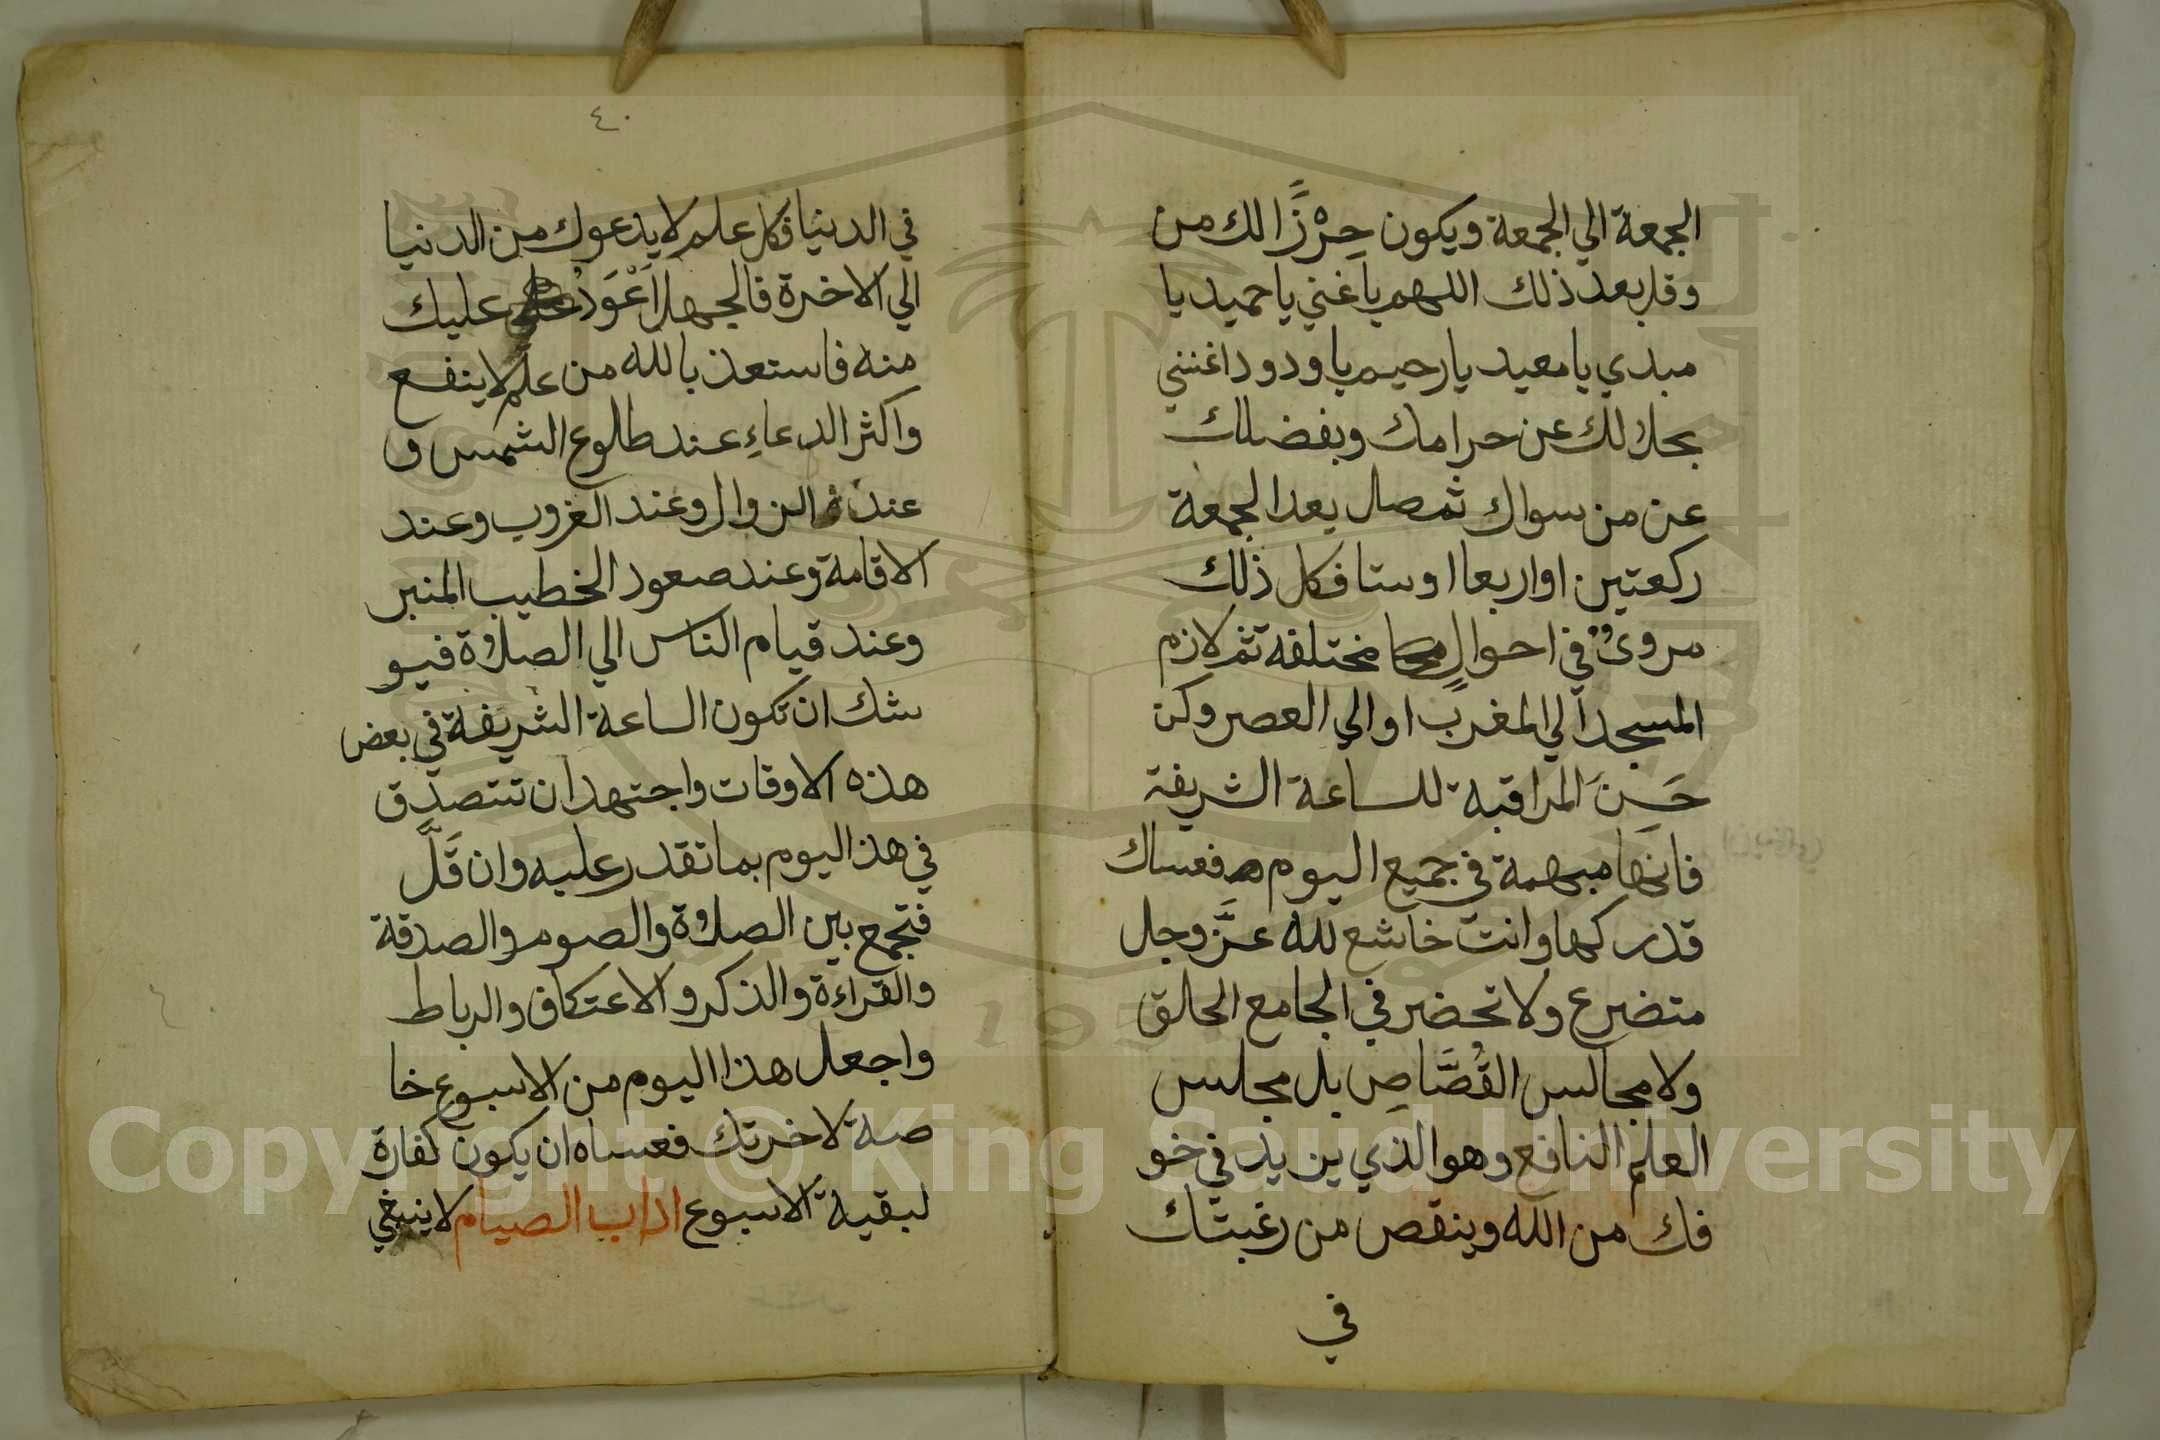 الجمعة الي الجمعة ويكون حِرْزًا لك من
وقل بعد ذلك اللهم يا غني يا حميد يا
مبدي يا معيد يا رحيم يا ودود اغنني
بحلالك عن حرامك وبفضلك
عن من سواك ثم صل بعد الجمعة
ركعتين او اربعا او ستا فكل ذلك
مروىٌ في احوالٍ مختلفة ثم لازم
المسجد الي المغرب او الي العصر وكن
حَسِنَ المراقبة للساعة الشريفة
فانها مبهمة في جميع اليوم فعساك
تدركها وانت خاشع لله عزَّ وجل
متضرع ولا تحضر في الجامع الحلق
ولا مجالس القُصَّاصِ بل مجلس
العلم النافع وهو الذي يزيد في خو
فك من الله وينقص من رغبتك
في
٤٠
في الدنيا فكل علم لا يدعوك من الدنيا
الي الاخرة فالجهل اَعْوَدُ عليك
منه فاستعذ بالله من علم لا ينفع
واكثر الدعاءِ عند طلوع الشمس و
عند الزوال وعند الغروب وعند
الاقامة وعند صعود الخطيب المنبر
وعند قيام الناس الي الصلاة فيو
شك ان تكون الساعة الشريفة في بعض
هذه الاوقات واجتهد ان تتصدق
في هذا اليوم بما تقدر عليه وان قَلَّ
فتجمع بين الصلاة والصوم والصدقة
والقراءة والذكر والاعتكاف والرباط
واجعل هذا اليوم من الاسبوع خا
صة لاخرتك فعساه ان يكون كفارة
لبقية الاسبوع اداب الصيام لا ينبغي
Copyright © King Saud University